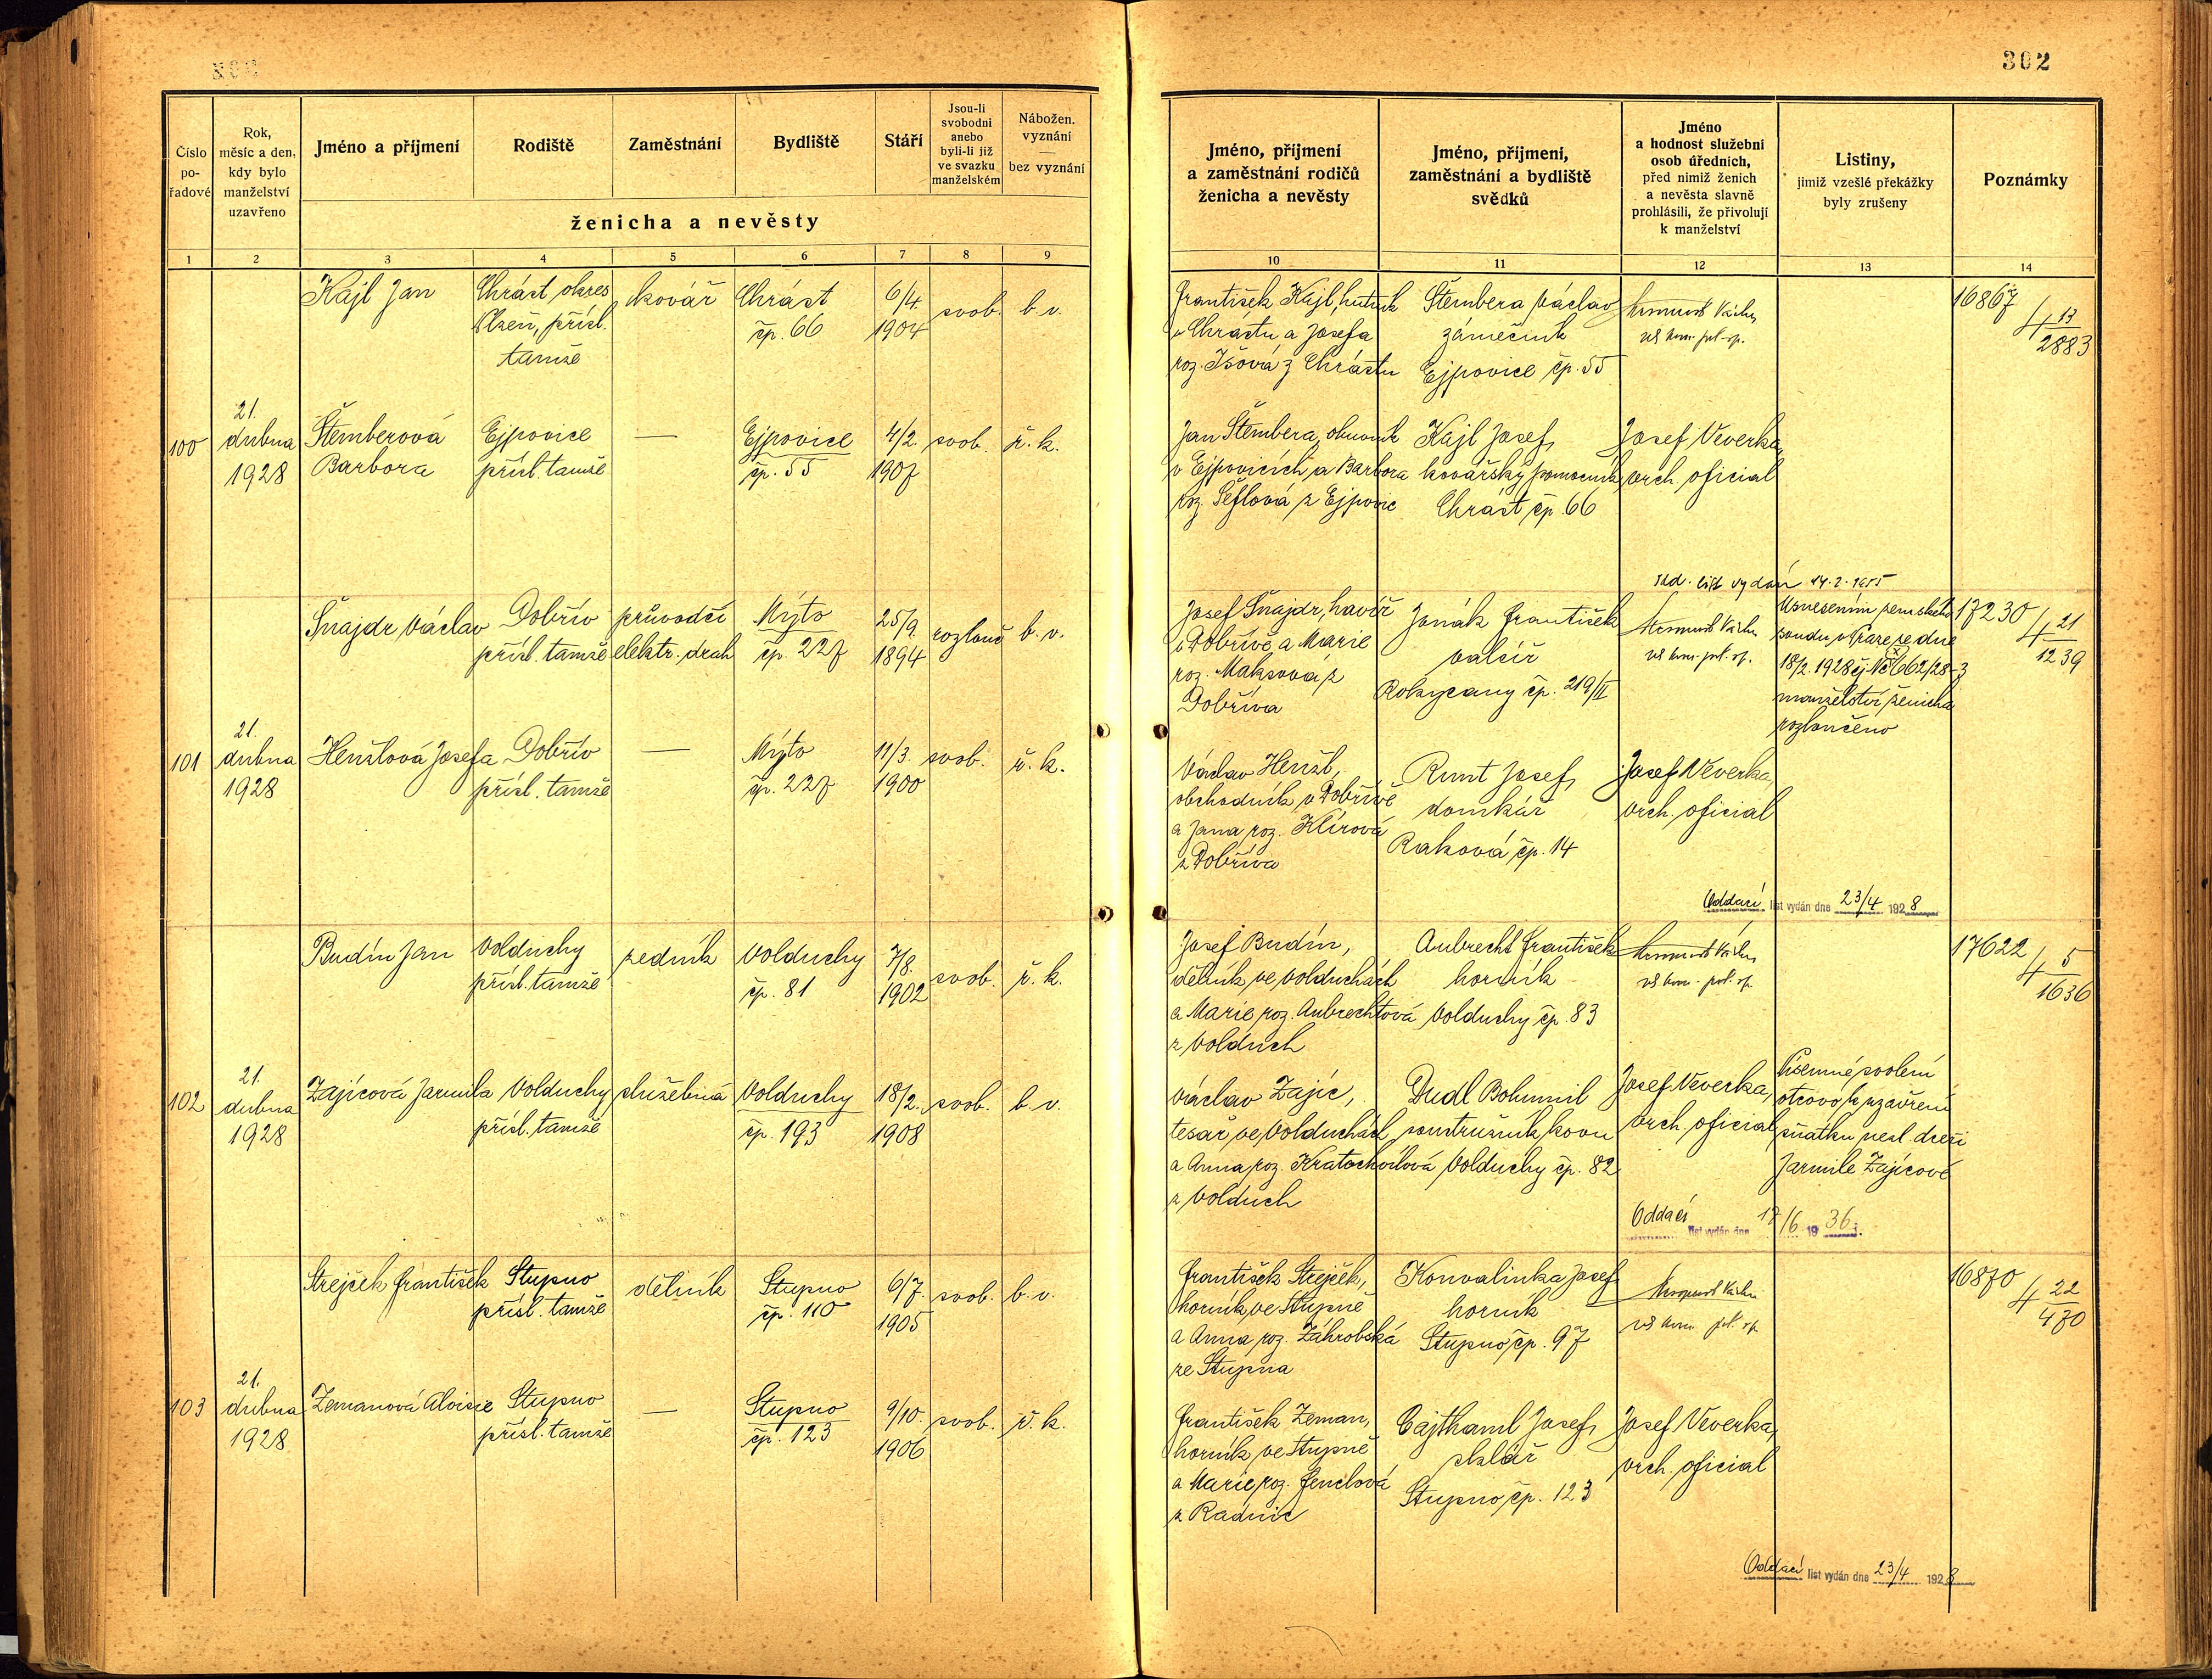 302
Číslo
po-
řadové
Rok,
měsíc a den,
kdy bylo
manželství
uzavřeno
Jméno a příjmení
Rodiště
Zaměstnání
Bydliště
Stáří
Jsou-li
svobodni
anebo
byli-li již
ve svazku
manželském
Nábožen.
vyznání
—
bez vyznání
ženicha a nevěsty
1 2 3 4 5 6 7 8 9
Kajl Jan
Chrást okres
Plzeň, přísl.
tamže
kovář
Chrást
čp. 66
6/4.
1904
svob.
b. v.
100
21.
dubna
1928
Štemberová
Barbora
Ejpovice
přísl. tamže
—
Ejpovice
čp. 55
4/2.
1907
svob.
ř. k.
Šnajdr Václav
Dobřív
přísl. tamže
průvodčí
elektr. drah
Mýto
čp. 227
25/9.
1894
rozlouč
b. v.
101
21.
dubna
1928
Henžlová Josefa
Dobřív
přísl. tamže
—
Mýto
čp. 227
11/3.
1900
svob.
ř. k.
Budín Jan
Volduchy
přísl. tamže
zedník
Volduchy
čp. 81
7/8.
1902
svob.
ř. k.
102
21.
dubna
1928
Zajícová Jarmila
Volduchy
přísl. tamže
služebná
Volduchy
čp. 193
18/2.
1908
svob.
b. v.
Strejček František
Stupno
přísl. tamže
dělník
Stupno
čp. 110
6/7.
1905
svob.
b. v.
103
21.
dubna
1928
Zemanová Aloisie
Stupno
přísl. tamže
—
Stupno
čp. 123
9/10.
1906
svob.
ř. k.
Jméno, příjmení
a zaměstnání rodičů
ženicha a nevěsty
Jméno, příjmení,
zaměstnání a bydliště
svědků
Jméno
a hodnost služební
osob úředních,
před nimiž ženich
a nevěsta slavně
prohlásili, že přivolují
k manželství
Listiny,
jimiž vzešlé překážky
byly zrušeny
Poznámky
10 11 12 13 14
František Kajl, hutník
v Chrástu a Josefa
roz. Išová z Chrástu
Štembera Václav
zámečník
Ejpovice čp. 55
16867
4 13
2883
Jan Štembera, obuvník
v Ejpovicích a Barbora
roz. Šeflová z Ejpovic
Kajl Josef,
kovářský pomocník
Chrást čp. 66
Josef Veverka,
vrch. oficial
odd. list vydán 14.2.1955
Josef Šnajdr, havíř
v Dobřívě a Marie
roz. Maksová z
Dobříva
Jonák František
valcíř
Rokycany čp. 219/II
Usnesením zemského
soudu v Praze ze dne
18/2. 1928 čj. Nc X 662/28-3
manželství ženicha
rozloučeno
17230
4 21
1239
Václav Henžl,
obchodník v Dobřívě
a Jana roz. Klírová
z Dobříva
Runt Josef,
domkář
Raková čp. 14
Josef Veverka
vrch. oficial
Oddací list vydán dne 23/4 1928
Josef Budín,
dělník ve Volduchách
a Marie roz. Aubrechtová
z Volduch
Aubrecht František
horník
Volduchy čp. 83
17622
4 5
1636
Václav Zajíc,
tesař ve Volduchách
a Anna roz. Kratochvílová
z Volduch
Dudl Bohumil
soustružník kovu
Volduchy čp. 82
Josef Veverka,
vrch. oficial
Písemné svolení
otcovo k uzavření
sňatku nezl. dceři
Jarmile Zajícové
Oddací list vydán dne 17/6. 1936.
František Strejček,
horník ve Stupně
a Anna roz. Záhrobská
ze Stupna
Konvalinka Josef
horník
Stupno čp. 97
16870
4 22
470
František Zeman,
horník ve Stupně
a Marie roz. Fenclová
z Radnic
Cajthaml Josef,
sklář
Stupno čp. 123
Josef Veverka,
vrch. oficial
Oddací list vydán dne 23/4 1928